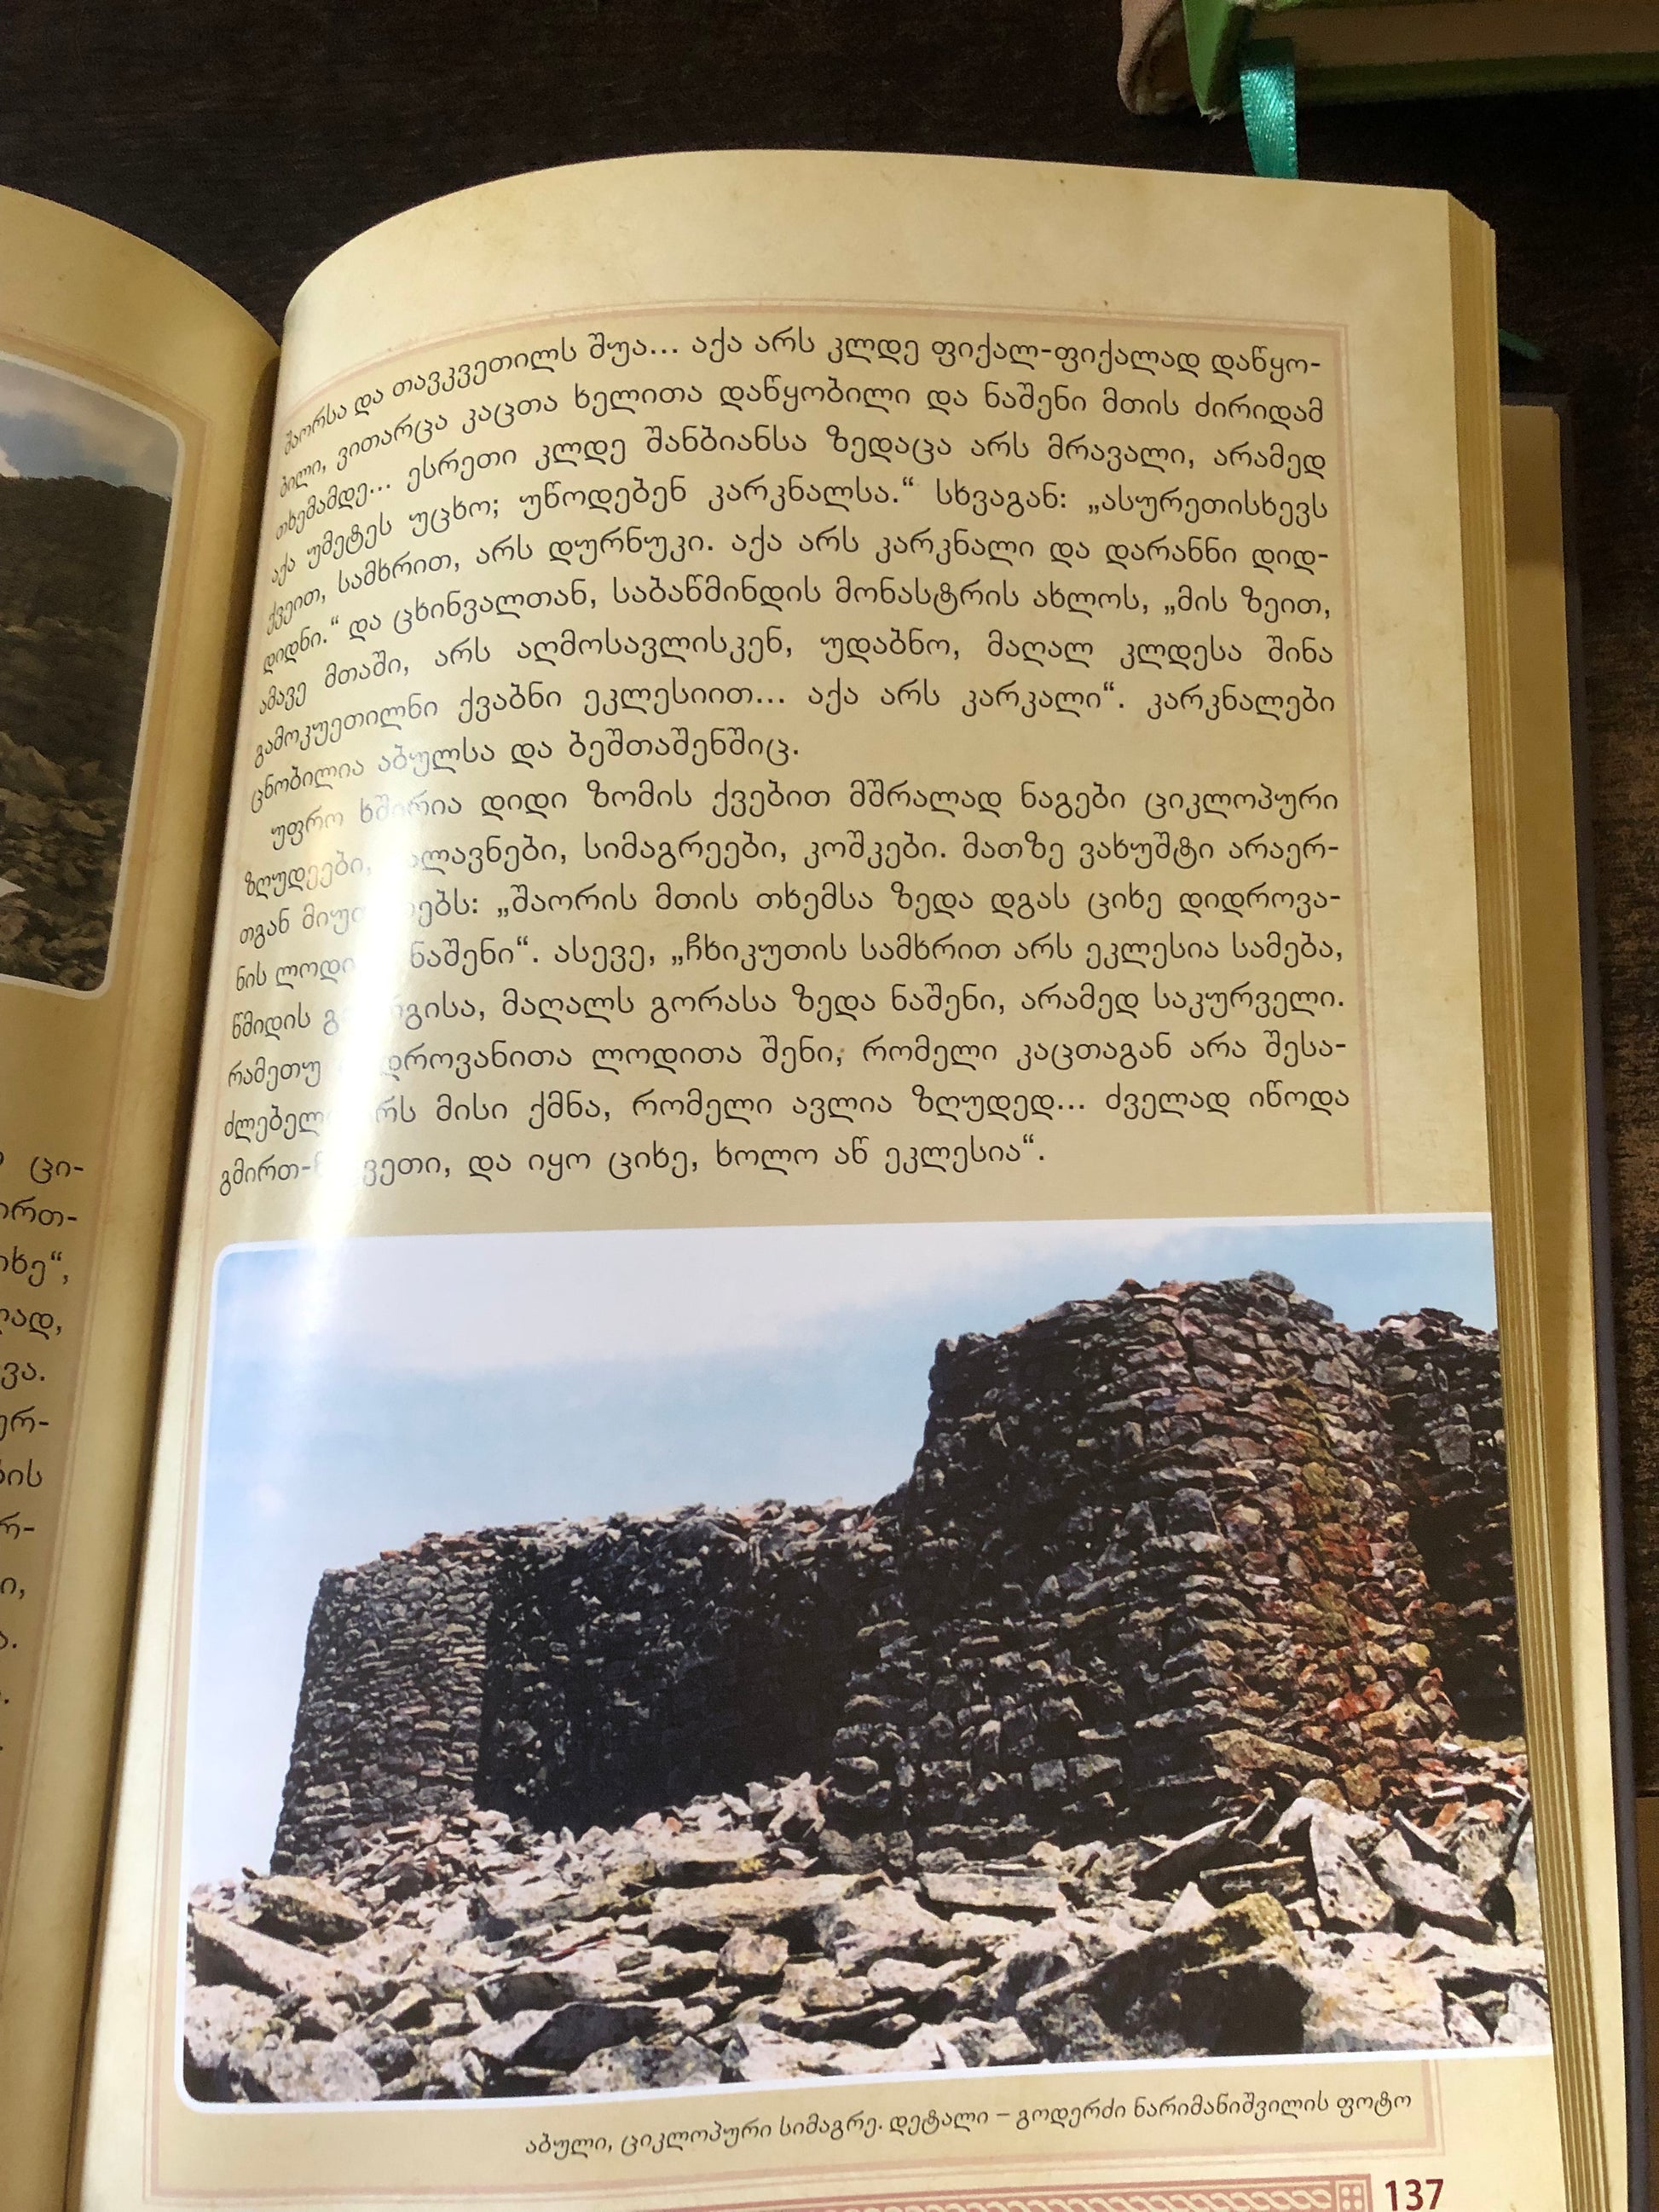 ცი-
შაორსა და თავკვეთილს შუა... აქა არს კლდე ფიქალ-ფიქალად დაწყო-
ბილი, ვითარცა კაცთა ხელითა დაწყობილი და ნაშენი მთის ძირიდამ
თხემამდე... ესრეთი კლდე შანბიანსა ზედაცა არს მრავალი, არამედ
აქა უმეტეს უცხო; უწოდებენ კარკნალსა.“ სხვაგან: „ასურეთისხევს
ქვეით, სამხრით, არს დურნუკი. აქა არს კარკნალი და დარანნი დიდ-
დიდნი.“ და ცხინვალთან, საბაწმინდის მონასტრის ახლოს, „მის ზეით,
ამავე მთაში, არს აღმოსავლისკენ, უდაბნო, მაღალ კლდესა შინა
გამოკუეთილნი ქვაბნი ეკლესიით... აქა არს კარკალი“. კარკნალები
ცნობილია აბულსა და ბეშთაშენშიც.
უფრო ხშირია დიდი ზომის ქვებით მშრალად ნაგები ციკლოპური
ზღუდეები, გალავნები, სიმაგრეები, კოშკები. მათზე ვახუშტი არაერ-
თგან „შაორის მთის თხემსა ზედა დგას ციხე დიდროვა-
ნის ნაშენი“. ასევე, „ჩხიკუთის სამხრით არს ეკლესია სამება,
წმიდის მაღალს გორასა ზედა ნაშენი, არამედ საკურველი.
რამეთუ ლოდითა შენი, რომელი კაცთაგან არა შესა-
არს მისი ქმნა, რომელი ავლია ზღუდედ... ძველად იწოდა
და იყო ციხე, ხოლო აწ ეკლესია“.
აბული, ციკლოპური სიმაგრე. დეტალი – გოდერძი ნარიმანიშვილის ფოტო
137